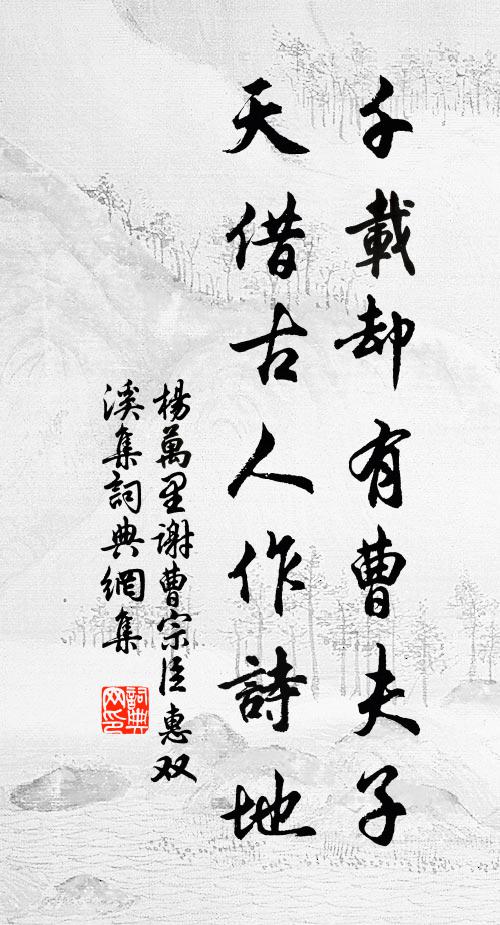 千載却有曹夫子
天借古人作詩地
楊萬里謝曹宗臣惠双
溪集詞典網集
詞典
网印